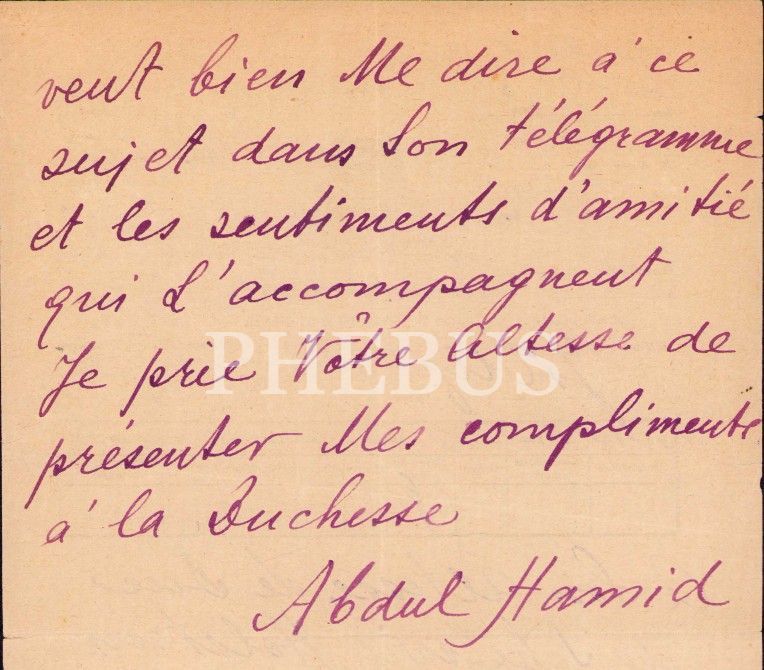 veut bien Me dire á ce
sujet dans Son télégramme
et les sentiments d'amitié
qui L'accompagnent
Je prie Vôtre Altesse de
PHEBUS
présenter Mes compliments
á la Duchesse
Abdul Hamid